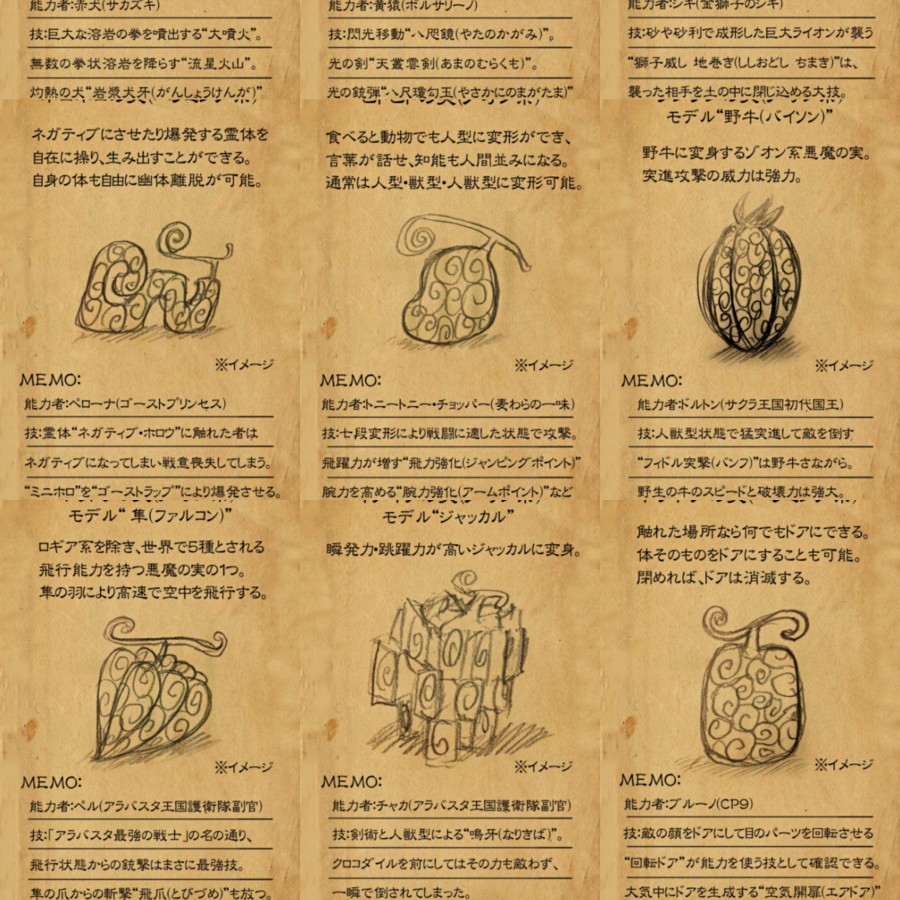 能力者:赤犬(サカズキ)
技:巨大な溶岩の拳を噴出する“大噴火”。
無数の拳状溶岩を降らす“流星火山”。
灼熱の犬“岩漿犬牙(がんしょうけんが)”
能力者:黄猿(ボルサリーノ)
技:閃光移動“八咫鏡(やたのかがみ)”。
光の剣“天叢雲剣(あまのむらくも)”。
光の銃弾“八尺瓊勾玉(やさかにのまがたま)”
能力者:シキ(金獅子のシキ)
技:砂や砂利で成形した巨大ライオンが襲う
“獅子威し 地巻き(ししおどし ちまき)”は、
襲った相手を土の中に閉じ込める大技。
ネガティブにさせたり爆発する霊体を
自在に操り、生み出すことができる。
自身の体も自由に幽体離脱が可能。
※イメージ
MEMO:
能力者:ペローナ(ゴーストプリンセス)
技:霊体“ネガティブ・ホロウ”に触れた者は
ネガティブになってしまい戦意喪失してしまう。
“ミニホロ”を“ゴーストラップ”により爆発させる。
食べると動物でも人型に変形ができ、
言葉が話せ、知能も人間並みになる。
通常は人型・獣型・人獣型に変形可能。
※イメージ
MEMO:
能力者:トニートニー・チョッパー(麦わらの一味)
技:七段変形により戦闘に適した状態で攻撃。
飛躍力が増す“飛力強化(ジャンピングポイント)”
腕力を高める“腕力強化(アームポイント)”など
モデル“野牛(バイソン)”
野牛に変身するゾオン系悪魔の実。
突進攻撃の威力は強力。
※イメージ
MEMO:
能力者:ドルトン(サクラ王国初代国王)
技:人獣型状態で猛突進して敵を倒す
“フィドル突撃(バンフ)”は野牛さながら。
野生の牛のスピードと破壊力は強大。
モデル“ 隼(ファルコン)”
ロギア系を除き、世界で5種とされる
飛行能力を持つ悪魔の実の1つ。
隼の羽により高速で空中を飛行する。
※イメージ
MEMO:
能力者:ペル(アラバスタ王国護衛隊副官)
技:「アラバスタ最強の戦士」の名の通り、
飛行状態からの銃撃はまさに最強技。
隼の爪からの斬撃“飛爪(とびづめ)”も放つ。
モデル“ジャッカル”
瞬発力・跳躍力が高いジャッカルに変身。
※イメージ
MEMO:
能力者:チャカ(アラバスタ王国護衛隊副官)
技:剣術と人獣型による“鳴牙(なりきば)”。
クロコダイルを前にしてはその力も敵わず、
一瞬で倒されてしまった。
触れた場所なら何でもドアにできる。
体そのものをドアにすることも可能。
閉めれば、ドアは消滅する。
※イメージ
MEMO:
能力者:ブルーノ(CP9)
技:敵の顔をドアにして目のパーツを回転させる
“回転ドア”が能力を使う技として確認できる。
大気中にドアを生成する“空気開扉(エアドア)”